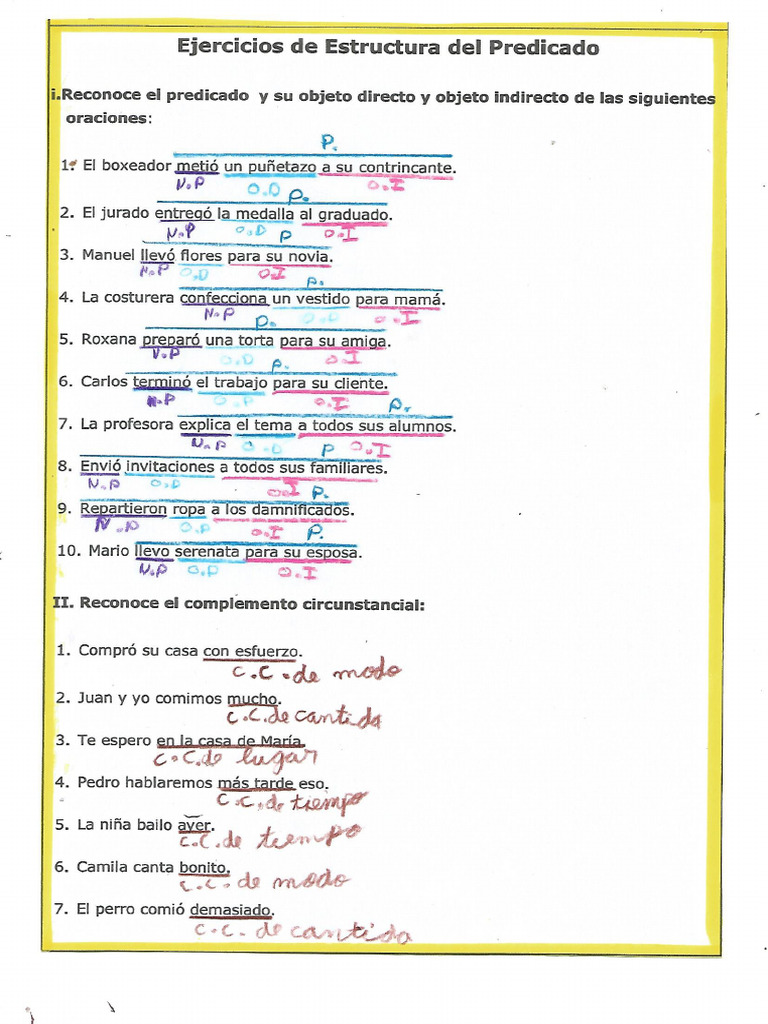 Ejercicios de Estructura del Predicado
i.Reconoce el predicado y su objeto directo y objeto indirecto de las siguientes
oraciones:
P.
1. El boxeador metió un puñetazo a su contrincante.
N.P O.D O.I
P.
2. El jurado entregó la medalla al graduado.
N.P O.D O.I
P
3. Manuel llevó flores para su novia.
N.P O.D O.I
P.
4. La costurera confecciona un vestido para mamá.
N.P O.D O.I
P.
5. Roxana preparó una torta para su amiga.
N.P O.D O.I
P.
6. Carlos terminó el trabajo para su cliente.
N.P O.D O.I
P.
7. La profesora explica el tema a todos sus alumnos.
N.P O.D O.I
P
8. Envió invitaciones a todos sus familiares.
N.P O.D O.I
P.
9. Repartieron ropa a los damnificados.
N.P O.D O.I
P.
10. Mario llevo serenata para su esposa.
N.P O.D O.I
II. Reconoce el complemento circunstancial:
1. Compró su casa con esfuerzo.
C.C. de modo
2. Juan y yo comimos mucho.
C.C. de cantida
3. Te espero en la casa de María.
C.C. de lugar
4. Pedro hablaremos más tarde eso.
C.C. de tiempo
5. La niña bailo ayer.
C.C. de tiempo
6. Camila canta bonito.
C.C. de modo
7. El perro comió demasiado.
C.C. de cantida